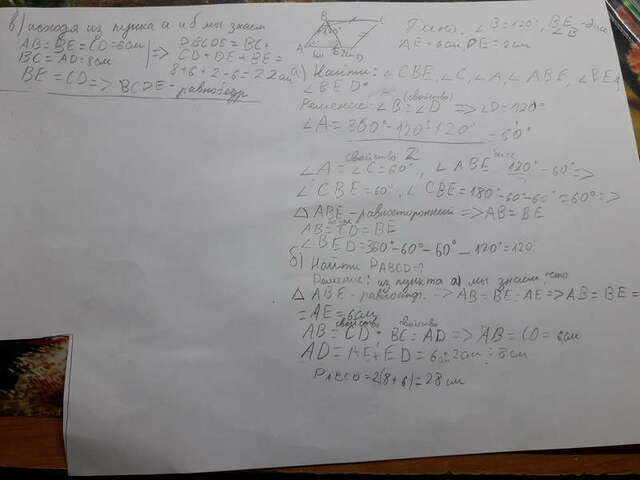 в) исходя из пункта а и б мы знаем
AB = BE = CD = 6см
BC = AD = 8см
=> PBCDE = BC +
CD + DE + BE =
8 + 6 + 2 + 6 = 22см
BE = CD => BCDE - равнобедр
B
A
E
D
Дано: ∠B = 120°, BE -
AE = 6см DE = 2см
а) Найти: ∠CBE, ∠C, ∠A, ∠ABE, ∠BEA
∠BED
Решение: ∠B = ∠D (свойство) => ∠D = 120°
∠A = 360° - 120° - 120° = 60°
свойство 2
∠A = ∠C = 60°, ∠ABE 120° - 60° =>
∠CBE = 60°, ∠CBE = 180° - 60 - 60° = 60° =>
△ABE - равносторонний => AB = BE
AB = CD = BE
∠BED = 360° - 60° - 60° - 120° = 120°
б) Найти PABCD - ?
Решение: из пункта а) мы знаем что
△ABE - => AB = BE = AE => AB = BE =
= AE = 6см
свойство свойство
AB = CD, BC = AD => AB = CD = 6см
AD = AE + ED = 6 + 2см = 8см
PABCD = 2(8 + 6) = 28см